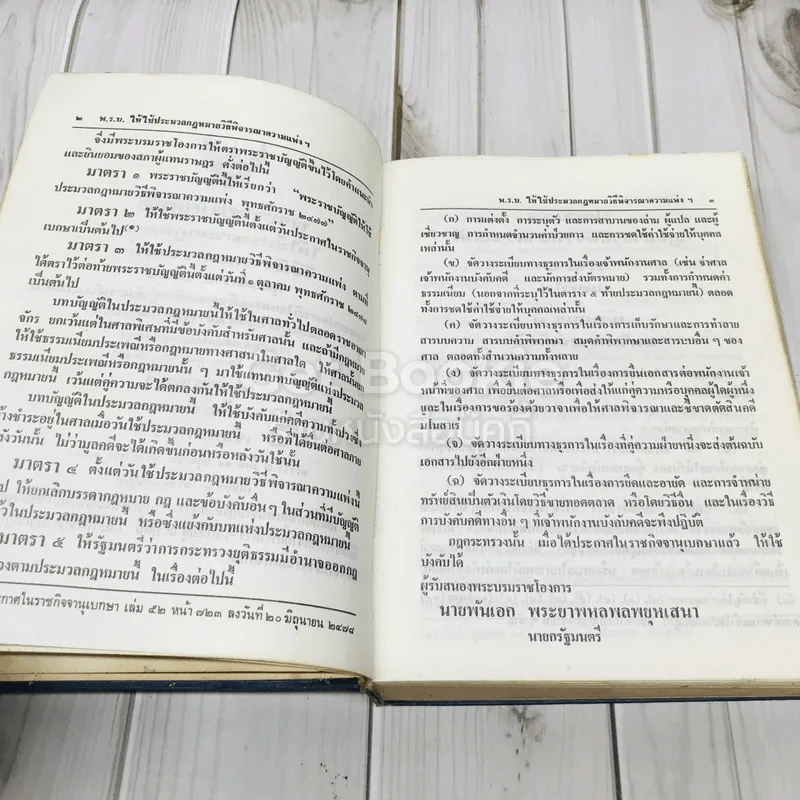 ๒ พ.ร.บ. ให้ใช้ประมวลกฎหมายวิธีพิจารณาความแพ่ง ฯ
จึ่งมีพระบรมราชโองการให้ตราพระราชบัญญัติขึ้นไว้โดยคำแนะนำ
และยินยอมของสภาผู้แทนราษฎร ดั่งต่อไปนี้
มาตรา ๑ พระราชบัญญัตินี้ให้เรียกว่า “พระราชบัญญัติให้ใช้
ประมวลกฎหมายวิธีพิจารณาความแพ่ง พุทธศักราช ๒๔๗๗”
มาตรา ๒ ให้ใช้พระราชบัญญัตินี้ตั้งแต่วันประกาศในราชกิจจานุ
เบกษาเป็นต้นไป(*)
มาตรา ๓ ให้ใช้ประมวลกฎหมายวิธีพิจารณาความแพ่ง ตามที่
ได้ตราไว้ต่อท้ายพระราชบัญญัตินี้ตั้งแต่วันที่ ๑ ตุลาคม พุทธศักราช ๒๔๗๘
เป็นต้นไป
บทบัญญัติในประมวลกฎหมายนี้ให้ใช้ในศาลทั่วไปตลอดราชอาณา
จักร ยกเว้นแต่ในศาลพิเศษที่มีข้อบังคับสำหรับศาลนั้น และถ้ามีกฎหมาย
ให้ใช้ธรรมเนียมประเพณีหรือกฎหมายทางศาสนาในศาลใด ให้ศาลนั้นยก
ธรรมเนียมประเพณีหรือกฎหมายนั้น ๆ มาใช้แทนบทบัญญัติแห่งประมวล
กฎหมายนี้ เว้นแต่คู่ความจะได้ตกลงกันให้ใช้ประมวลกฎหมายนี้
บทบัญญัติในประมวลกฎหมายนี้ ให้ใช้บังคับแก่คดีความทั้งปวงซึ่ง
ค้างชำระอยู่ในศาลเมื่อวันใช้ประมวลกฎหมายนี้ หรือที่ได้ยื่นต่อศาลภาย
หลังวันนั้น ไม่ว่ามูลคดีจะได้เกิดขึ้นก่อนหรือหลังวันใช้นั้น
มาตรา ๔ ตั้งแต่วันใช้ประมวลกฎหมายวิธีพิจารณาความแพ่งนี้
ไป ให้ยกเลิกบรรดากฎหมาย กฎ และข้อบังคับอื่นๆ ในส่วนที่มีบัญญัติ
ไว้ในประมวลกฎหมายนี้ หรือซึ่งแย้งกับบทแห่งประมวลกฎหมายนี้
มาตรา ๕ ให้รัฐมนตรีว่าการกระทรวงยุติธรรมมีอำนาจออกกฎ
วงตามประมวลกฎหมายนี้ ในเรื่องต่อไปนี้
กาศในราชกิจจานุเบกษา เล่ม ๕๒ หน้า ๗๒๓ ลงวันที่ ๒๐ มิถุนายน ๒๔๗๘
พ.ร.บ. ให้ใช้ประมวลกฎหมายวิธีพิจารณาความแพ่ง ฯ ๓
(ก) การแต่งตั้ง การระบุตัว และการสาบานของล่าม ผู้แปล และผู้
เชี่ยวชาญ การกำหนดจำนวนค่าป่วยการ และการชดใช้ค่าใช้จ่ายให้บุคคล
เหล่านั้น
(ข) จัดวางระเบียบทางธุรการในเรื่องเจ้าพนักงานศาล (เช่น จ่าศาล
เจ้าพนักงานบังคับคดี และนักการส่งบัตรหมาย) รวมทั้งการกำหนดค่า
ธรรมเนียม (นอกจากที่ระบุไว้ในตาราง ๕ ท้ายประมวลกฎหมายนี้) ตลอด
ทั้งการชดใช้ค่าใช้จ่ายให้บุคคลเหล่านั้น
(ค) จัดวางระเบียบทางธุรการในเรื่องการเก็บรักษาและการทำลาย
สารบบความ สารบบคำพิพากษา สมุดคำพิพากษาและสารบบอื่น ๆ ของ
ศาล ตลอดทั้งสำนวนความทั้งหลาย
(ง) จัดวางระเบียบทางธุรการในเรื่องการยื่นเอกสารต่อพนักงานเจ้า
หน้าที่ของศาล เพื่อยื่นต่อศาลหรือเพื่อส่งให้แก่คู่ความหรือบุคคลผู้ใดผู้หนึ่ง
และในเรื่องการขอร้องด้วยวาจาเพื่อให้ศาลพิจารณาและชี้ขาดตัดสินคดี
มโนสาเร่
(จ) จัดวางระเบียบทางธุรการในเรื่องที่คู่ความฝ่ายหนึ่งจะส่งต้นฉบับ
เอกสารไปยังอีกฝ่ายหนึ่ง
(ฉ) จัดวางระเบียบธุรการในเรื่องการยึดและอายัด และการจำหน่าย
ทรัพย์สินเป็นตัวเงินโดยวิธีขายทอดตลาด หรือโดยวิธีอื่น และในเรื่องวิธี
การบังคับคดีทางอื่น ๆ ที่เจ้าพนักงานบังคับคดีจะพึงปฏิบัติ
กฎกระทรวงนั้น เมื่อได้ประกาศในราชกิจจานุเบกษาแล้ว ให้ใช้
บังคับได้
ผู้รับสนองพระบรมราชโองการ
นายพันเอก พระยาพหลพลพยุหเสนา
นายกรัฐมนตรี